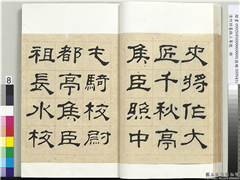 史將作大
匠千秋亭
侯臣照中
屯騎校尉
都亭侯臣
祖長水校
8